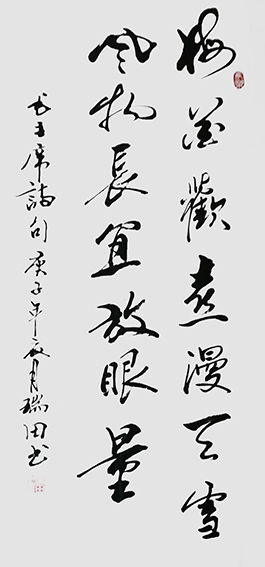 梅花歡喜漫天雪
風物長宜放眼量
毛主席詩句 庚子年夏月瑞田书